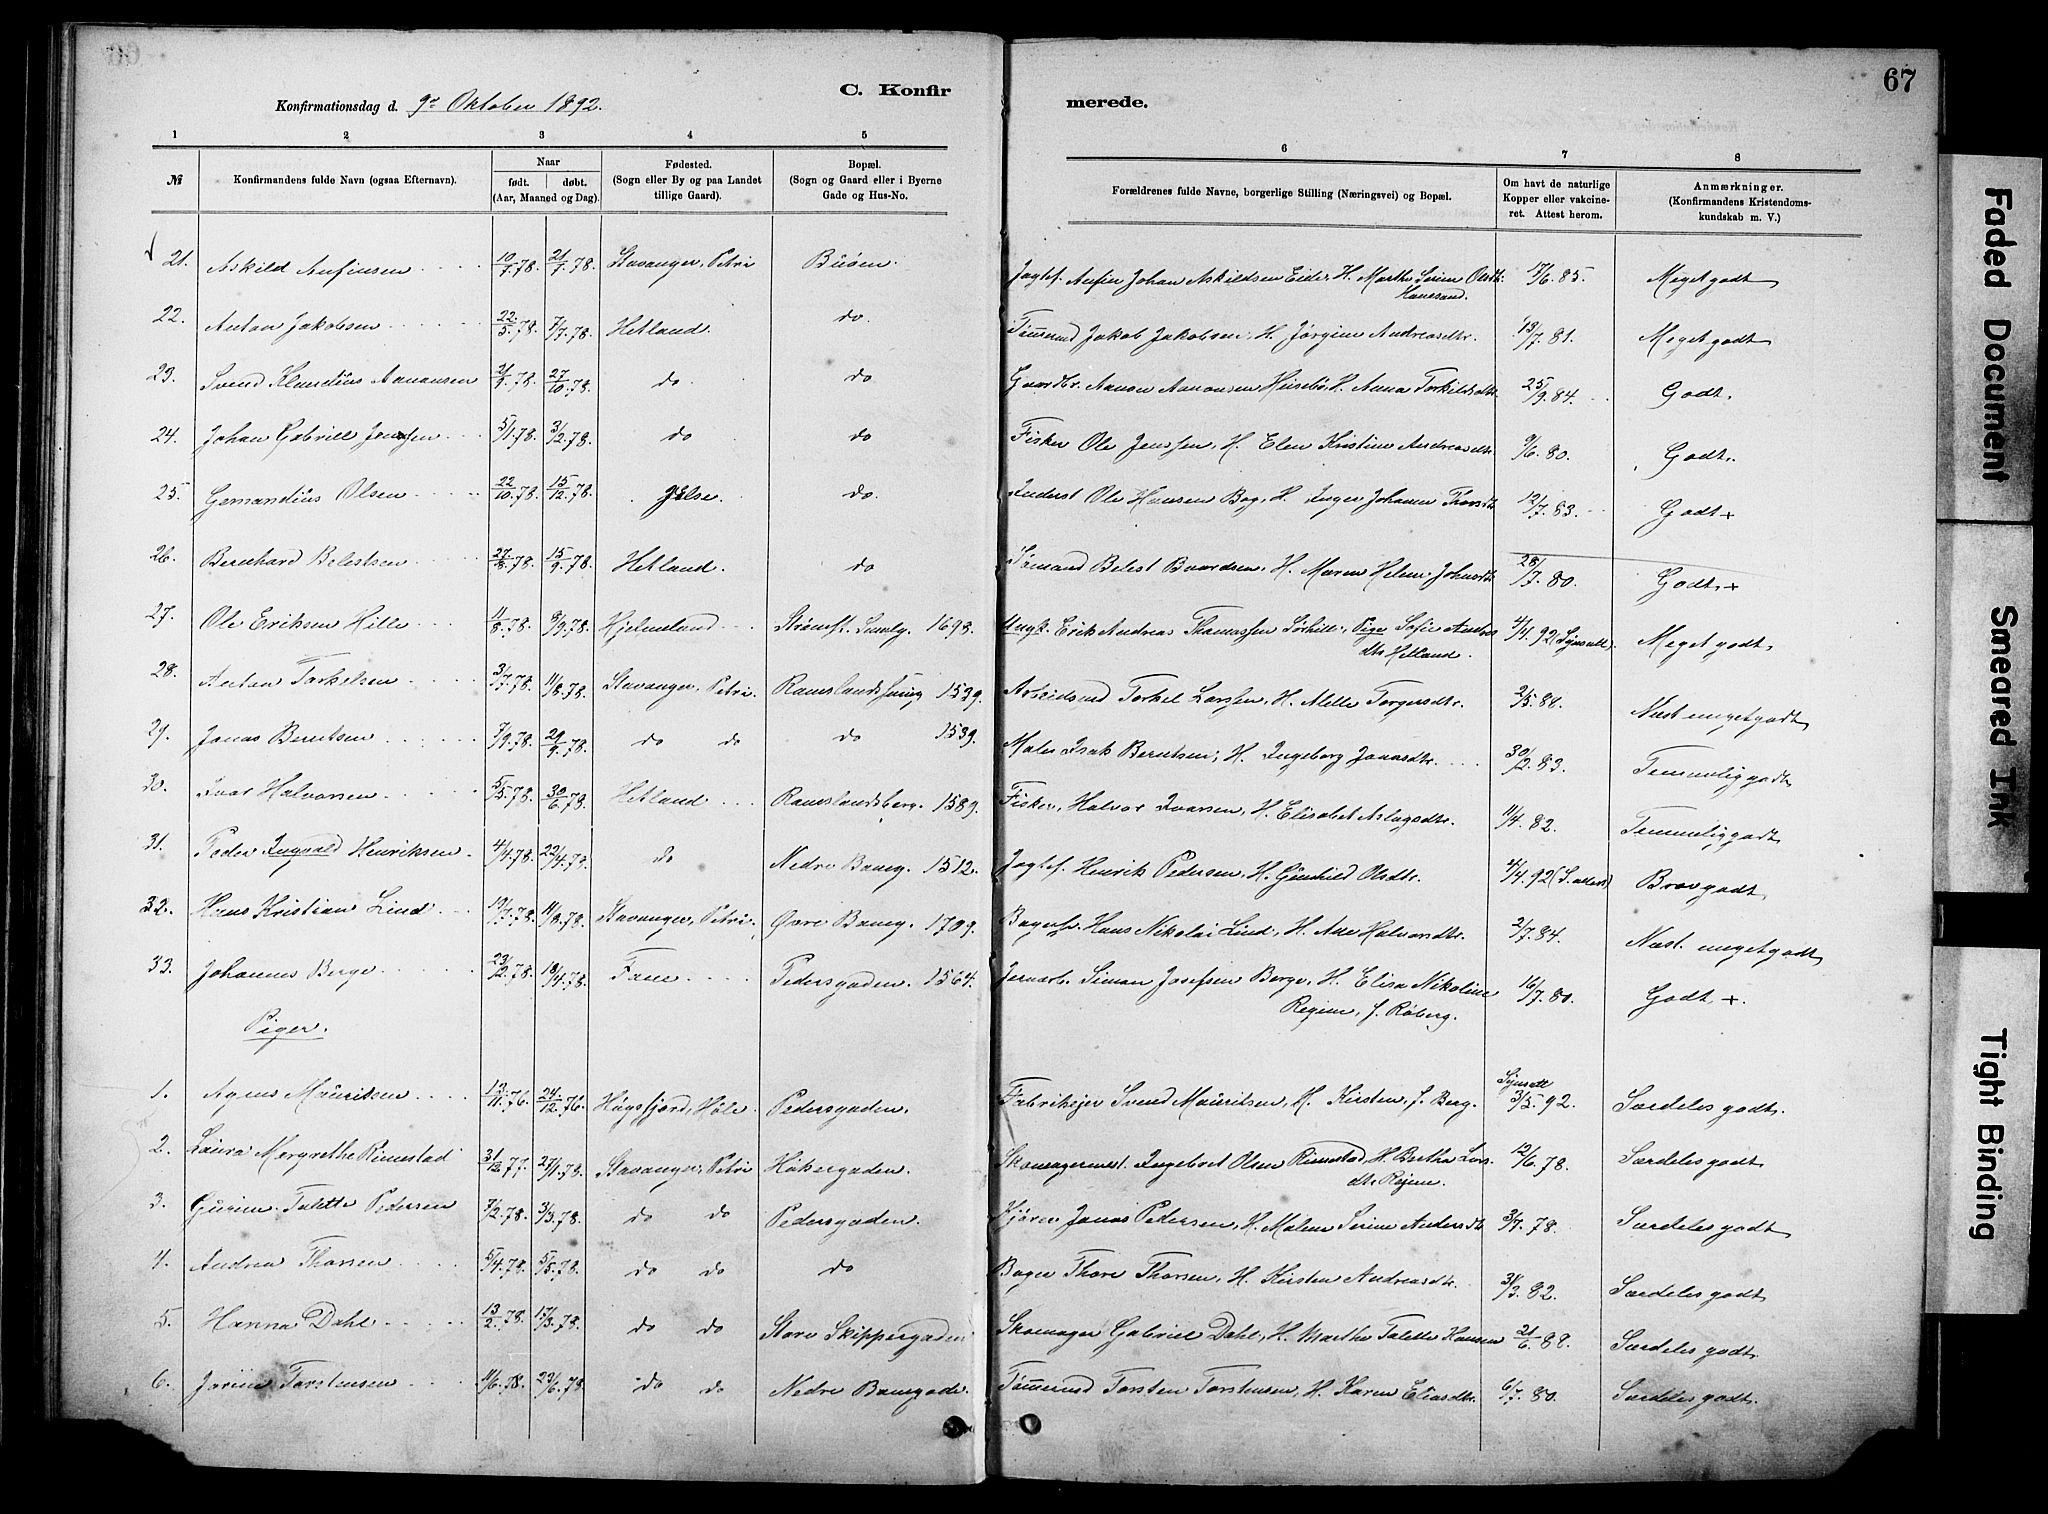 67
C. Konfir merede.
Konfirmationsdag d. 9de Oktober 1892.
1 2 3 4 5 6 7 8
№ Konfirmandens fulde Navn (ogsaa Efternavn).
Naar
født. døbt.
(Aar, Maaned og Dag).
Fødested.
(Sogn eller By og paa Landet
tillige Gaard).
Bopæl.
(Sogn og Gaard eller i Byerne
Gade og Hus-No.
Forældrenes fulde Navne, borgerlige Stilling (Næringsvei) og Bopæl.
Om havt de naturlige
Kopper eller vakcine-
ret. Attest herom.
Anmærkninger.
(Konfirmandens Kristendoms-
kundskab m. V.)
21. Askild Anfinsen 10/7.78. 21/7.78. Stavanger, Petri Buøen. Jagtef. Anfin Johan Askildsen Eide, H. Marthe Serine Olsdtr. 17/6.85. Meget godt
Hanesand.
22. Anton Jakobsen 22/5.78. 7/7.78. Hetland. do. Tømmermd Jakob Jakobsen, H. Jørgine Andreasdtr. 13/7.81. Meget godt
23. Svend Klaudius Aanonsen 21/9.78. 27/10.78. do. do Gaardbr. Aanon Aanonsen Husebø, H. Anna Torkildsdtr. 25/9.84. Godt.
24. Johan Gabriel Jenssen 5/1.78. 3/2.78. do do Fisker Ole Jenssen, H. Elen Kristine Andreasdtr. 9/6.80. Godt.
25. Gemandius Olsen 22/10.78. 15/12.78. Jelse. do. Inderst Ole Hansen Bog, H. Inger Johanne Thorsdtr. 12/7.83. Godt +
26. Bernhard Belestsen 27/8.78. 15/9.78. Hetland. do Tømmermand Belest Baardsen, H. Maren Helene Johnsdtr. 28/7.80. Godt +
27. Ole Eriksen Hille 11/8.78. 8/9.78. Hjelmeland Strømst. Smulg. 1698. Ungk. Erik Andreas Thomassen Sørhille, Pige Sofie Andrea 4/4.92 (Synsatt). Meget godt.
dtr Hetland.
28. Anton Torkelsen 3/7.78. 11/8.78. Stavanger, Petri. Ramslandssmug 1539. Arbeidsmd Torkel Larssen, H. Mette Torgersdtr. 2/5.88. Næst meget godt
29. Jonas Berntsen 7/9.78. 29/9.78. do do do 1539. Maler Isak Berntsen, H. Ingeborg Jonasdtr. 30/12.83. Temmelig godt
30. Ivar Halvorsen 5/5.78. 30/6.78. Hetland Ramslandsberg. 1589. Fisker, Halvor Ivarsen, H. Elisabet Aslagsdtr. 11/4.82. Temmelig godt
31. Peder Ingvald Henriksen. 4/4.78. 22/4.78. do Nedre Baneg. 1512. Jagtef. Henrik Pedersen, H. Gunhild Olsdtr. 4/4.92 (S. attest) Bravgodt
32. Hans Kristian Lind 19/7.78. 11/8.78. Stavanger, Petri. Øvre Baneg. 1709. Bagersv. Hans Nikolai Lind, H. Ane Halvorsdtr. 2/7.84. Næst meget godt
33. Johannes Berge 23/2.78. 18/4.78. Fane Pedersgaden. 1564. Jernarb. Simon Josefsen Berge, H. Elisa Nikoline 16/7.80. Godt +.
Regine, f. Røberg.
Piger.
1. Agnes Mauritsen 13/11.76. 24/12.76. Høgsfjord, Høle. Pedersgaden. Fabrikejer Svend Mauritsen, H. Kirsten, f. Berg. Synsatt 3/5.92. Særdeles godt.
2. Laura Margrethe Rimestad 31/12.77. 27/1.78. Stavanger, Petri Høkergaden. Skomagermest. Ingebret Olsen Rimestad, H. Bertha Lars- 12/6.78. Særdeles godt
dtr Regine.
3. Gurine Talette Pedersen 7/2.78. 3/3.78. do do Pedersgaden. Kjører Jonas Pedersen, H. Malene Serine Andersdtr. 3/7.78. Særdeles godt
4. Andrea Thorsen 5/4.78. 5/5.78. do do do Bager Thore Thorsen, H. Kirsten Andreasdtr. 31/3.82. Særdeles godt
5. Hanna Dahl 13/2.78. 17/3.78. do do Store Skippergaden Skomager Gabriel Dahl, H. Marthe Talette Hansen 21/6.88. Særdeles godt.
6. Jorine Torstensen 11/6.78. 23/6.78. do do Nedre Banegade. Tømmermd Torsten Torstensen, H. Karen Eliasdtr. 6/7.80. Særdeles godt.
Faded Document
Smeared Ink
Tight Binding